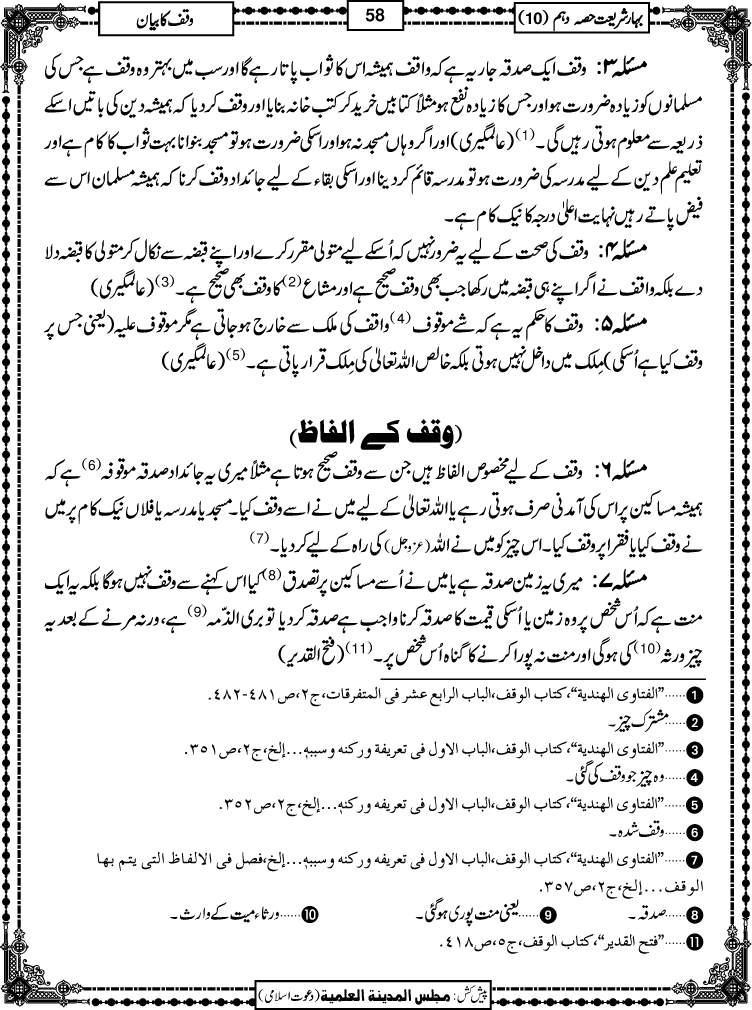 بہار شریعت حصہ دہم (10)
58
وقف کا بیان
مسئلہ ۳: وقف ایک صدقہ جاریہ ہے کہ واقف ہمیشہ اس کا ثواب پاتا رہے گا اور سب میں بہتر وہ وقف ہے جس کی
مسلمانوں کو زیادہ ضرورت ہو اور جس کا زیادہ نفع ہو مثلاً کتابیں خرید کر کتب خانہ بنایا اور وقف کر دیا کہ ہمیشہ دین کی باتیں اسکے
ذریعہ سے معلوم ہوتی رہیں گی۔(1) (عالمگیری) اور اگر وہاں مسجد نہ ہو اور اسکی ضرورت ہو تو مسجد بنوانا بہت ثواب کا کام ہے اور
تعلیم علم دین کے لیے مدرسہ کی ضرورت ہو تو مدرسہ قائم کر دینا اور اسکی بقاء کے لیے جائداد وقف کرنا کہ ہمیشہ مسلمان اس سے
فیض پاتے رہیں نہایت اعلیٰ درجہ کا نیک کام ہے۔
مسئلہ ۴: وقف کی صحت کے لیے یہ ضرور نہیں کہ اُسکے لیے متولی مقرر کرے اور اپنے قبضہ سے نکال کر متولی کا قبضہ دلا
دے بلکہ واقف نے اگر اپنے ہی قبضہ میں رکھا جب بھی وقف صحیح ہے اور مشاع(2) کا وقف بھی صحیح ہے۔(3) (عالمگیری)
مسئلہ ۵: وقف کا حکم یہ ہے کہ شے موقوف(4) واقف کی ملک سے خارج ہو جاتی ہے مگر موقوف علیہ (یعنی جس پر
وقف کیا ہے اُسکی) ملک میں داخل نہیں ہوتی بلکہ خالص اللہ تعالیٰ کی ملک قرار پاتی ہے۔(5) (عالمگیری)
(وقف کے الفاظ)
مسئلہ ۶: وقف کے لیے مخصوص الفاظ ہیں جن سے وقف صحیح ہوتا ہے مثلاً میری یہ جائداد صدقہ موقوفہ(6) ہے کہ
ہمیشہ مساکین پر اس کی آمدنی صرف ہوتی رہے یا اللہ تعالیٰ کے لیے میں نے اسے وقف کیا۔ مسجد یا مدرسہ یا فلاں نیک کام پر میں
نے وقف کیا یا فقرا پر وقف کیا۔ اس چیز کو میں نے اللہ (عزوجل) کی راہ کے لیے کر دیا۔(7)
مسئلہ ۷: میری یہ زمین صدقہ ہے یا میں نے اُسے مساکین پر تصدق(8) کیا اس کہنے سے وقف نہیں ہوگا بلکہ یہ ایک
منت ہے کہ اُس شخص پر وہ زمین یا اُسکی قیمت کا صدقہ کرنا واجب ہے صدقہ کر دیا تو بری الذمہ(9) ہے، ورنہ مرنے کے بعد یہ
چیز ورثہ(10) کی ہوگی اور منت نہ پورا کرنے کا گناہ اُس شخص پر۔(11) (فتح القدیر)
1......"الفتاوى الهندية"، كتاب الوقف، الباب الرابع عشر فى المتفرقات، ج٢، ص٤٨١-٤٨٢.
2......مشترک چیز۔
3......"الفتاوى الهندية"، كتاب الوقف، الباب الاول فى تعريفة وركنه وسببه...إلخ، ج٢، ص٣٥١.
4......وہ چیز جو وقف کی گئی۔
5......"الفتاوى الهندية"، كتاب الوقف، الباب الاول فى تعريفه وركنه...إلخ، ج٢، ص٣٥٢.
6......وقف شدہ۔
7......"الفتاوى الهندية"، كتاب الوقف، الباب الاول فى تعريفه وركنه وسببه...إلخ، فصل فى الالفاظ التى يتم بها
الوقف...إلخ، ج٢، ص٣٥٧.
8......صدقہ۔ 9......یعنی منت پوری ہوگئی۔ 10......ورثاء میت کے وارث۔
11......"فتح القدير"، كتاب الوقف، ج٥، ص٤١٨.
پیش کش: مجلس المدینۃ العلمیۃ (دعوت اسلامی)